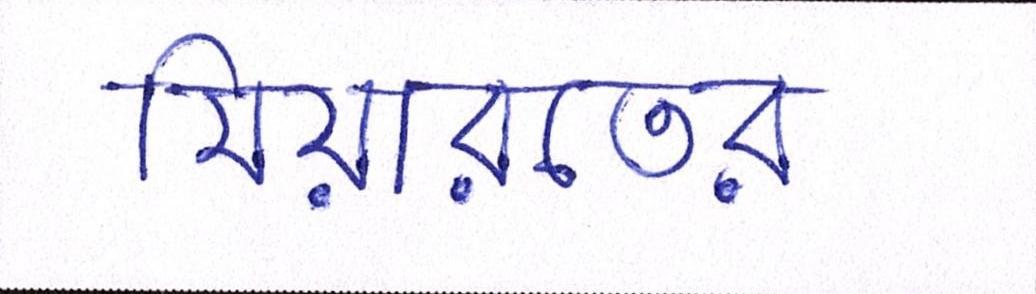 যিয়ারতের